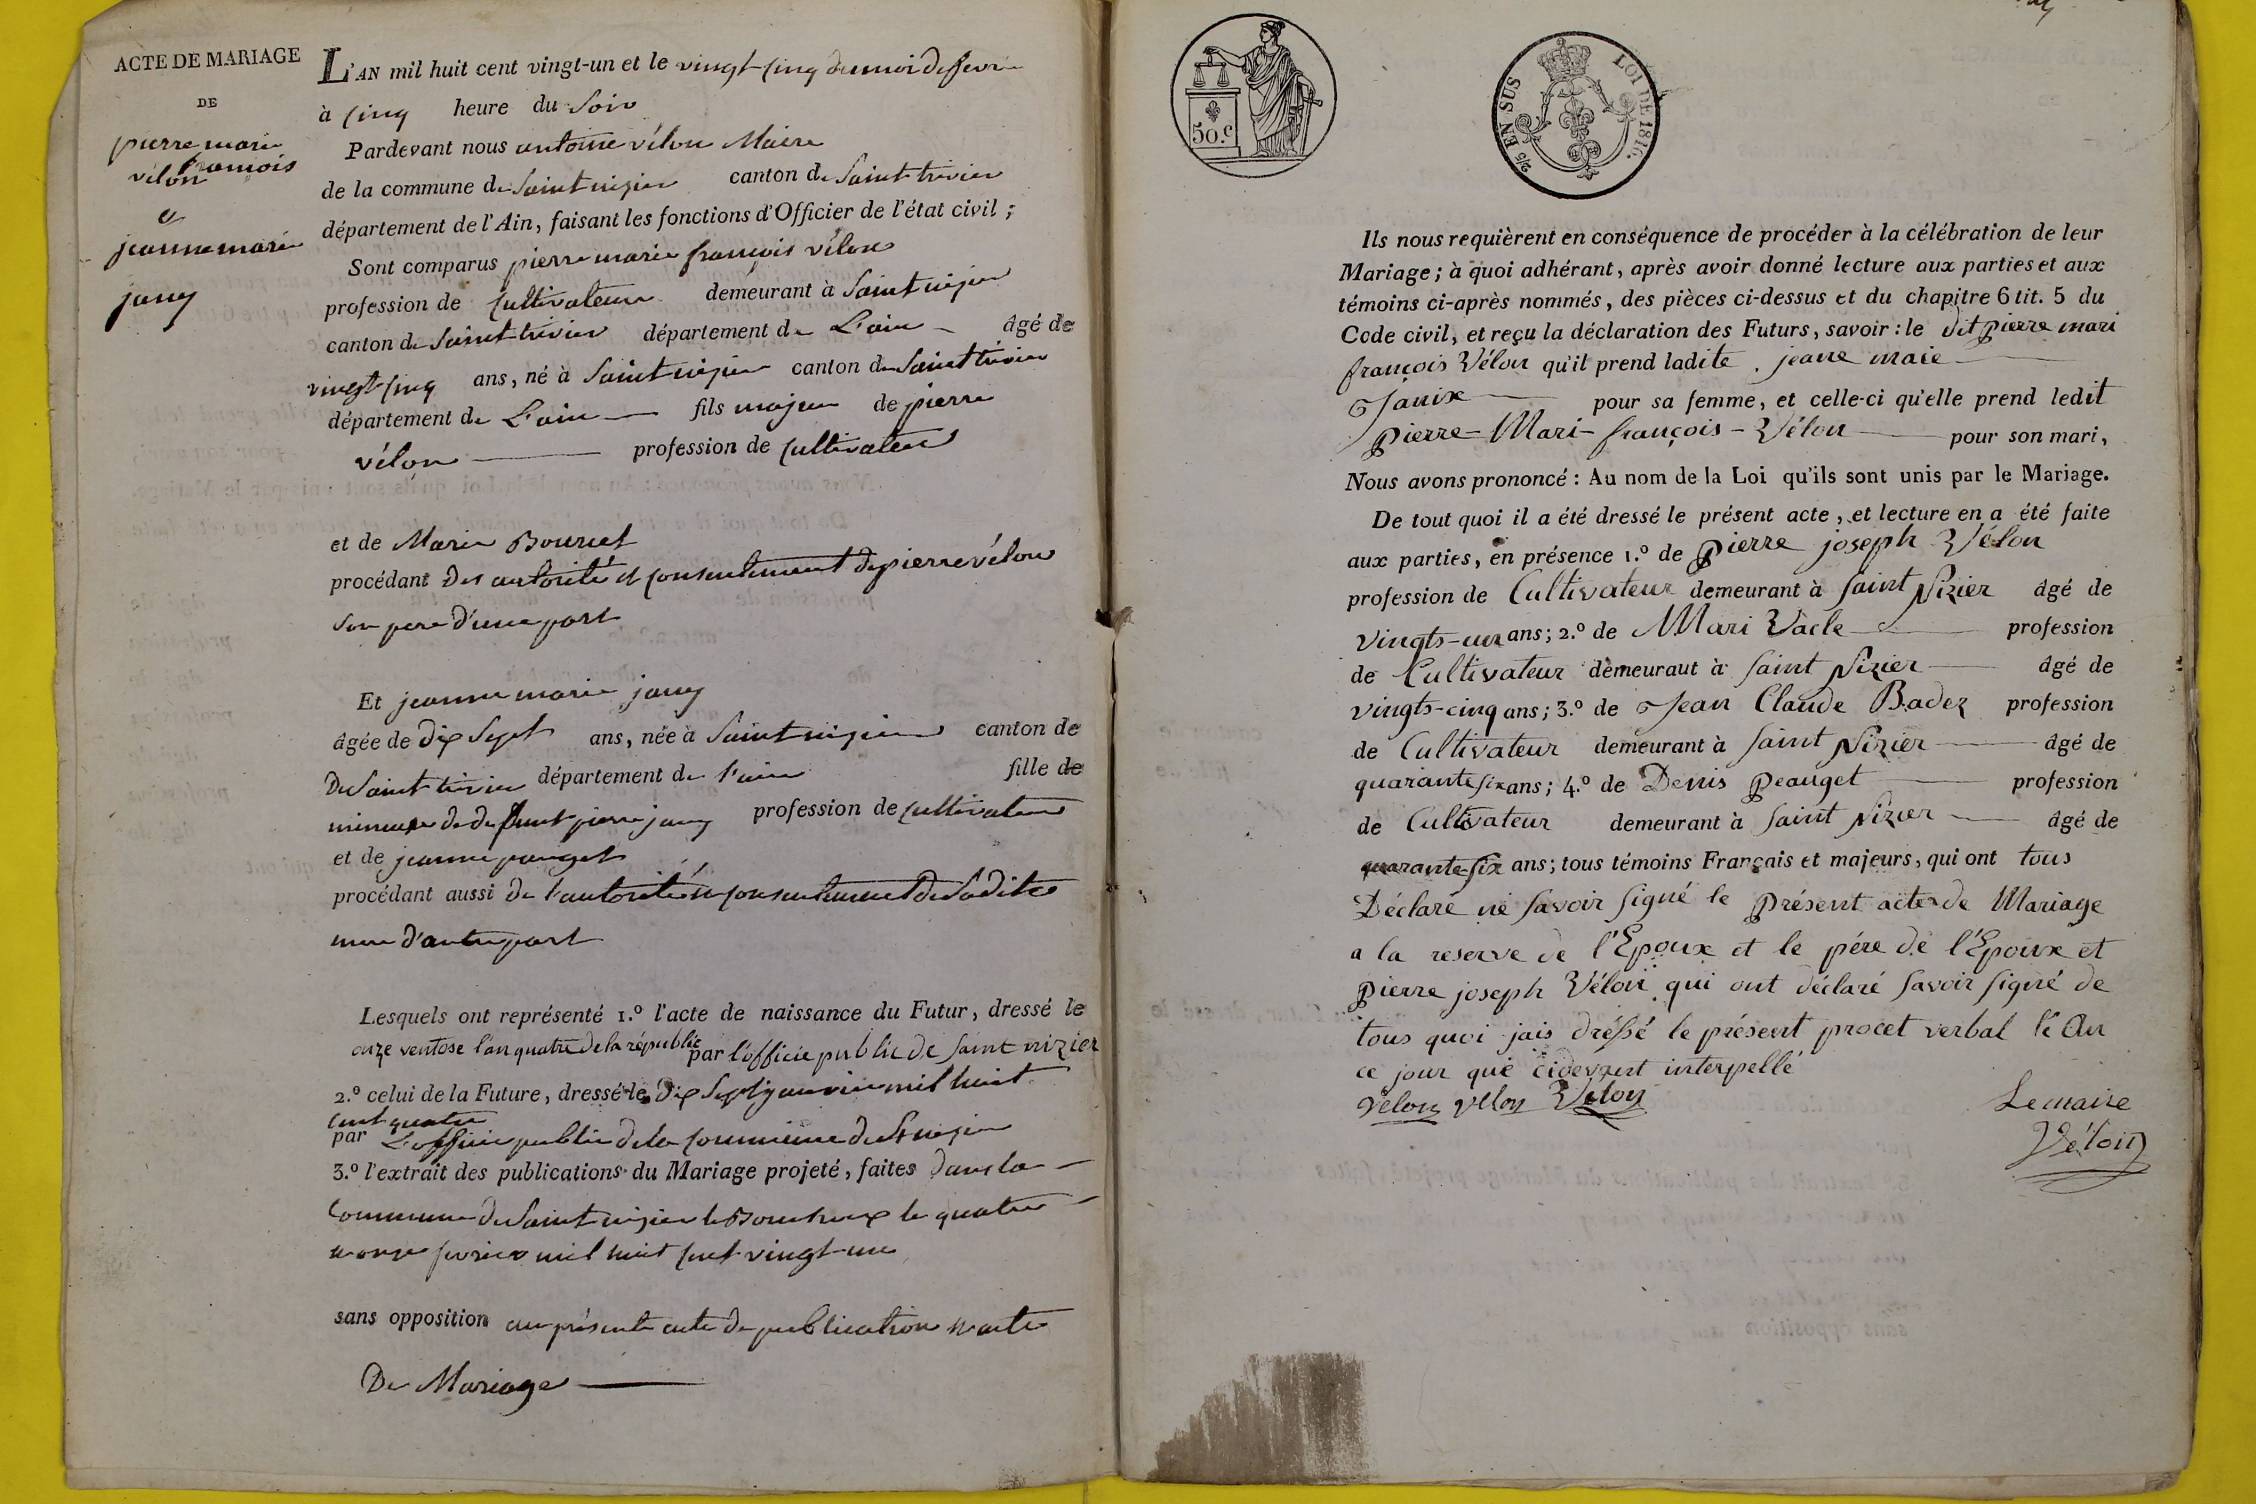 ACTE DE MARIAGE
DE
pierre marie
françois
vélon
et
jeanne marie
jany
L'AN mil huit cent vingt-un et le vingt cinq du moi de fevrie
à cinq heure du soir
Pardevant nous antoine vélon Maire
de la commune de Saint nizier canton de Saint trivier
département de l'Ain, faisant les fonctions d'Officier de l'état civil ;
Sont comparus pierre marie françois vélon
profession de cultivateur demeurant à Saint nizier
canton de Saint trivier département de L'ain âgé de
vingt cinq ans, né à Saint nizier canton de Saint trivier
département de L'ain fils majeur de pierre
vélon profession de cultivateur
et de Marie Bourcet
procédant des autorité et consentement de pierre vélon
son pere d'une part
Et jeanne marie jany
âgée de dix sept ans, née à Saint nizier canton de
De Saint trivier département de l'ain fille de
mineure de defunt pierre jany profession de cultivateur
et de jeanne pauget
procédant aussi de l'autorité et consentement de Sadite
mere d'autre part
Lesquels ont représenté 1.º l'acte de naissance du Futur, dressé le
onze ventose l'an quatre de la républic par l'officie public de saint nizier
2.º celui de la Future, dressé le Dix Sept janvier mil huit
cent quatre
par L'officie public de la commune de St nizier
3.º l'extrait des publications du Mariage projeté, faites dans la
Commune de Saint nizier le Bouchoux le quatre
et onze fevrier mil huit cent vingt-un
sans opposition au présente acte de publication et acte
De Mariage
50.c
2/5 EN SUS
LOI DE 1816.
Ils nous requièrent en conséquence de procéder à la célébration de leur
Mariage ; à quoi adhérant, après avoir donné lecture aux parties et aux
témoins ci-après nommés, des pièces ci-dessus et du chapitre 6 tit. 5 du
Code civil, et reçu la déclaration des Futurs, savoir : le dit pierre mari
françois Vélon qu'il prend ladite jeane maie
Janix pour sa femme, et celle-ci qu'elle prend ledit
Pierre - Mari - françois - Vélon pour son mari,
Nous avons prononcé : Au nom de la Loi qu'ils sont unis par le Mariage.
De tout quoi il a été dressé le présent acte, et lecture en a été faite
aux parties, en présence 1.º de pierre joseph Vélon
profession de Cultivateur demeurant à saint Nizier âgé de
vingts-un ans ; 2.º de Mari Vacle profession
de Cultivateur demeuraut à saint Nizier âgé de
vingts-cinq ans ; 3.º de Jean Claude Badez profession
de Cultivateur demeurant à saint Nizier âgé de
quarante six ans ; 4.º de Denis Peauget profession
de Cultivateur demeurant à saint Nizier âgé de
quarante-six ans ; tous témoins Français et majeurs, qui ont tous
Déclaré ne savoir signé le présent acte de Mariage
a la reserve de l'Epoux et le pére de l'Epoux et
pierre joseph Vélon qui ont déclaré savoir signé de
tous quoi jais dréssé le présent procet verbal le an
ce jour que cidevant interpellé
velon velon Velon
Le maire
Vélon